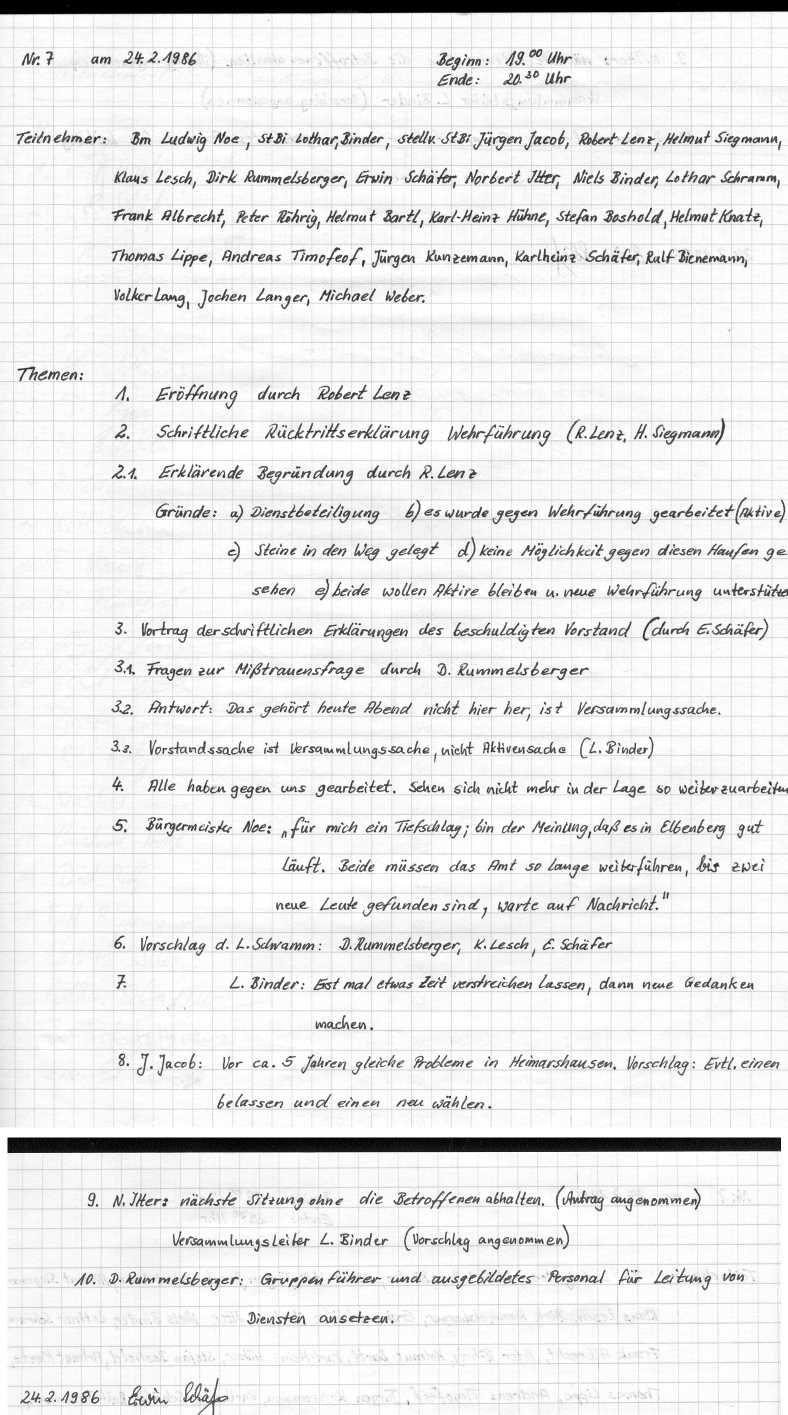 Nr. 7 am 24.2.1986 Beginn: 19.00 Uhr
Ende: 20.30 Uhr
Teilnehmer: Bm Ludwig Noe, StBi Lothar Binder, stellv. StBi Jürgen Jacob, Robert Lenz, Helmut Siegmann,
Klaus Lesch, Dirk Rummelsberger, Erwin Schäfer, Norbert Itter, Niels Binder, Lothar Schramm,
Frank Albrecht, Peter Röhrig, Helmut Bartl, Karl-Heinz Hühne, Stefan Boshold, Helmut Knatz,
Thomas Lippe, Andreas Timofeof, Jürgen Kunzemann, Karlheinz Schäfer, Ralf Bienemann,
Volker Lang, Jochen Langer, Michael Weber.
Themen:
1. Eröffnung durch Robert Lenz
2. Schriftliche Rücktrittserklärung Wehrführung (R. Lenz, H. Siegmann)
2.1. Erklärende Begründung durch R. Lenz
Gründe: a) Dienstbeteiligung b) es wurde gegen Wehrführung gearbeitet (Aktive)
c) Steine in den Weg gelegt d) keine Möglichkeit gegen diesen Haufen ge
sehen e) beide wollen Aktive bleiben u. neue Wehrführung unterstütze
3. Vortrag der schriftlichen Erklärungen des beschuldigten Vorstand (durch E. Schäfer)
3.1. Fragen zur Mißtrauensfrage durch D. Rummelsberger
3.2. Antwort: Das gehört heute Abend nicht hier her, ist Versammlungssache.
3.3. Vorstandssache ist Versammlungssache, nicht Aktivensache (L. Binder)
4. Alle haben gegen uns gearbeitet. Sehen sich nicht mehr in der Lage so weiterzuarbeiten
5. Bürgermeister Noe: „für mich ein Tiefschlag; bin der Meinung, daß es in Elbenberg gut
läuft. Beide müssen das Amt so lange weiterführen, bis zwei
neue Leute gefunden sind, warte auf Nachricht."
6. Vorschlag d. L. Schramm: D. Rummelsberger, K. Lesch, E. Schäfer
7. L. Binder: Erst mal etwas Zeit verstreichen lassen, dann neue Gedanken
machen.
8. J. Jacob: Vor ca. 5 Jahren gleiche Probleme in Heimarshausen. Vorschlag: Evtl. einen
belassen und einen neu wählen.
9. N. Itter: nächste Sitzung ohne die Betroffenen abhalten. (Antrag angenommen)
Versammlungsleiter L. Binder (Vorschlag angenommen)
10. D. Rummelsberger: Gruppenführer und ausgebildetes Personal für Leitung von
Diensten ansetzen.
24.2.1986 Erwin Schäfer